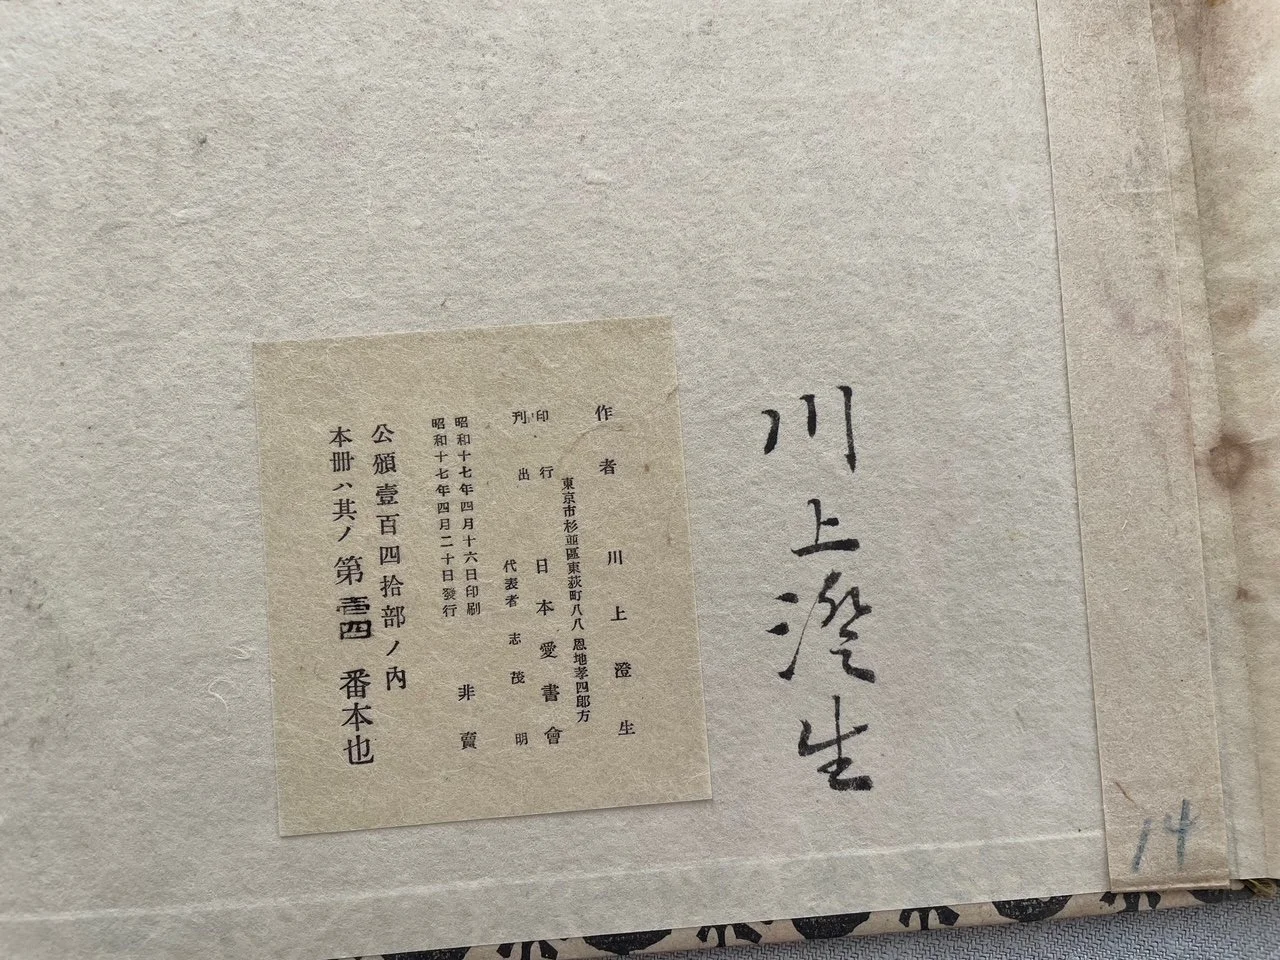 川上澄生
作者 川上澄生
東京市杉並區東荻町八八 恩地孝四郎方
印行 日本愛書會
刊出 代表者 志茂明
昭和十七年四月十六日印刷
昭和十七年四月二十日發行
非賣
公頒壹百四拾部ノ內
本冊ハ其ノ第壹四番本也
14